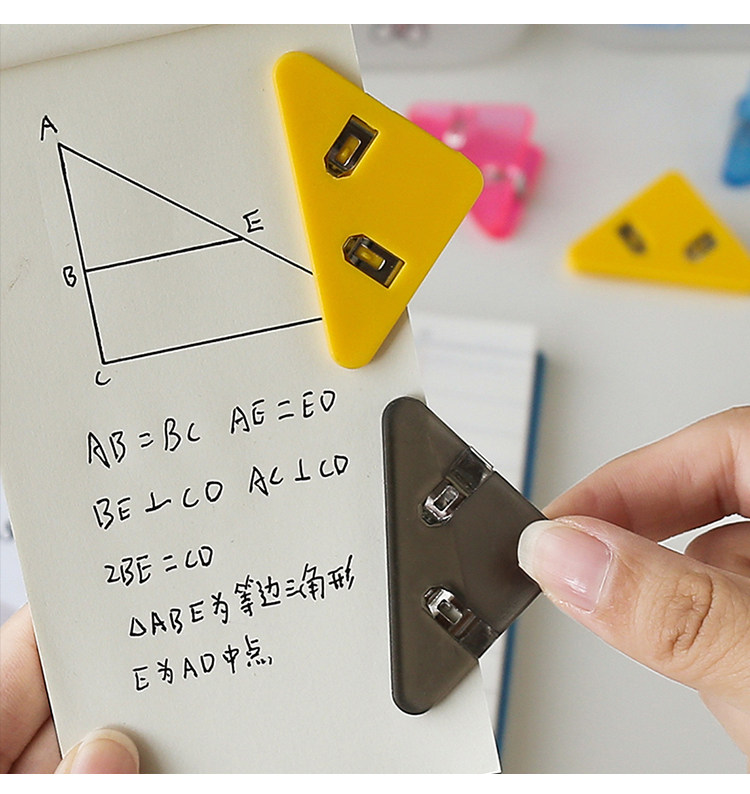 A
E
B
C
AB=BC AE=ED
BE⊥CD AC⊥CD
2BE=CD
△ABE为等边三角形
E为AD中点